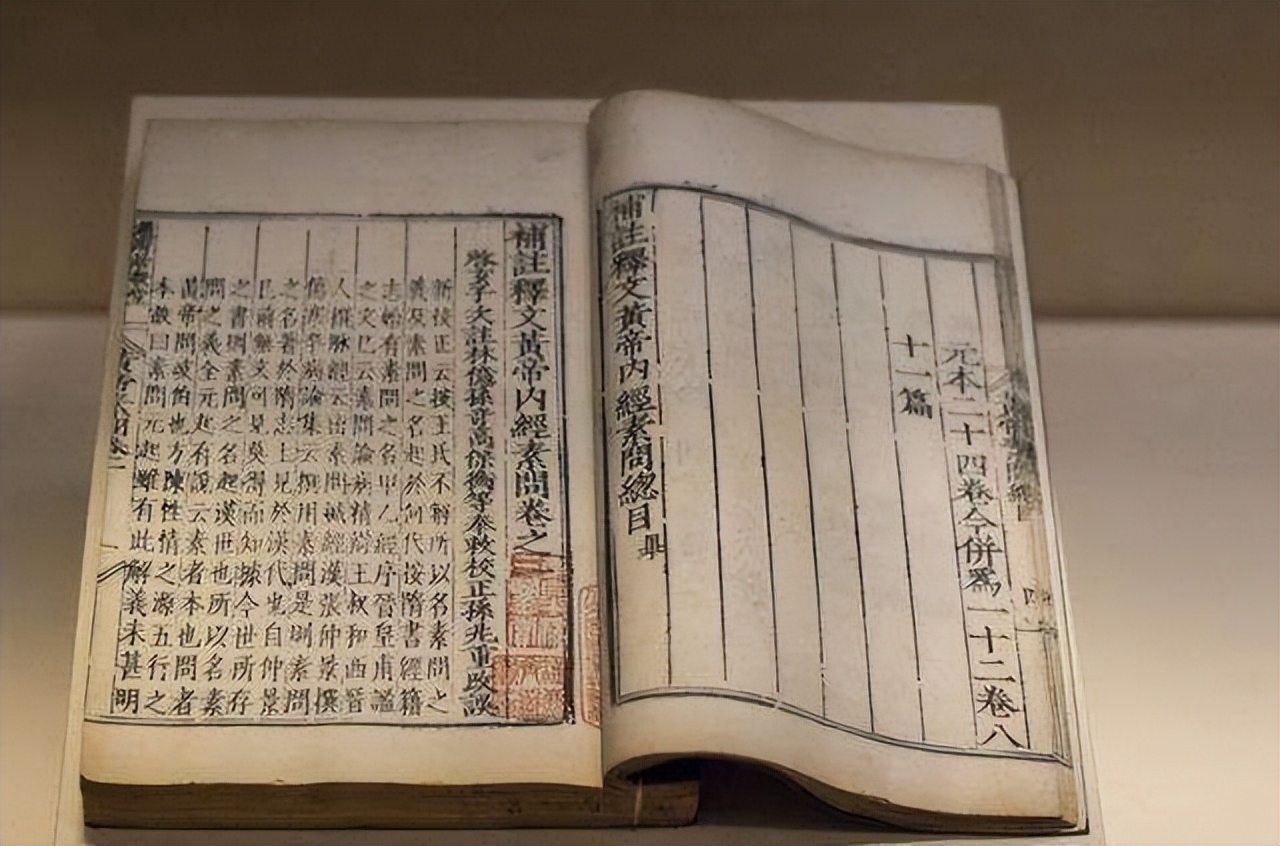 元本二十四卷今併爲一十二卷八
十一篇
補註釋文黃帝內經素問總目畢
補註釋文黃帝內經素問卷之
啓玄子次註林億孫奇高保衡等奉敕校正孫兆重改誤
新校正云按王氏不解所以名素問之
義及素問之名起於何代按隋書經籍
志始有素問之名甲乙經序晉皇甫謐
之文已云素問論病精辯王叔和西晉
人撰脉經云出素問鍼經漢張仲景撰
傷寒卒病論集云撰用素問是則素問
之名著於隋志上見於漢代也自仲景
已前無文可見莫得而知據今世所存
之書則素問之名起漢世也所以名素
問之義全元起有說云素者本也問者
黃帝問岐伯也方陳性情之源五行之
本故曰素問元起雖有此解義未甚明